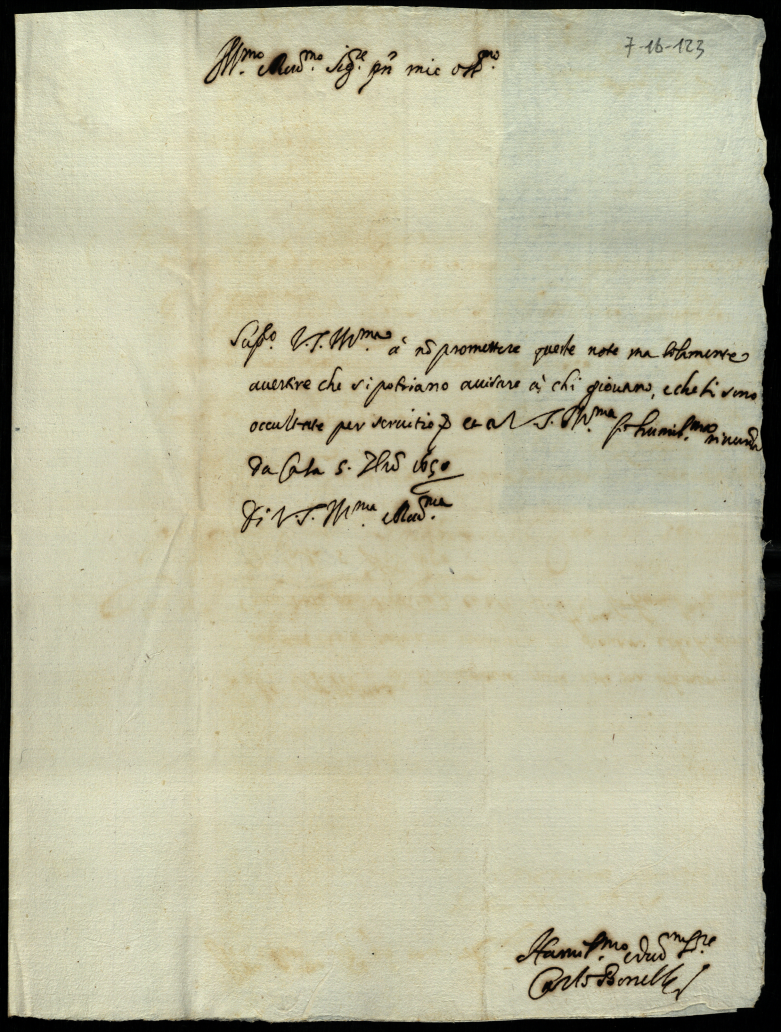 7-16-123
Ill.mo e Rev.mo Sig.re pñ mio oss.mo
Sup.co V.S. Ill.ma à nõ promettere queste note ma solamente
avertire che si potriano avisare à chi giovano, e che si sono
occultate per servitio et a V.S. Ill.ma humil.mo
Da Casa 5. 1650
Di V.S. Ill.ma e Rev.ma
Humil.mo
Carlo Bonelli